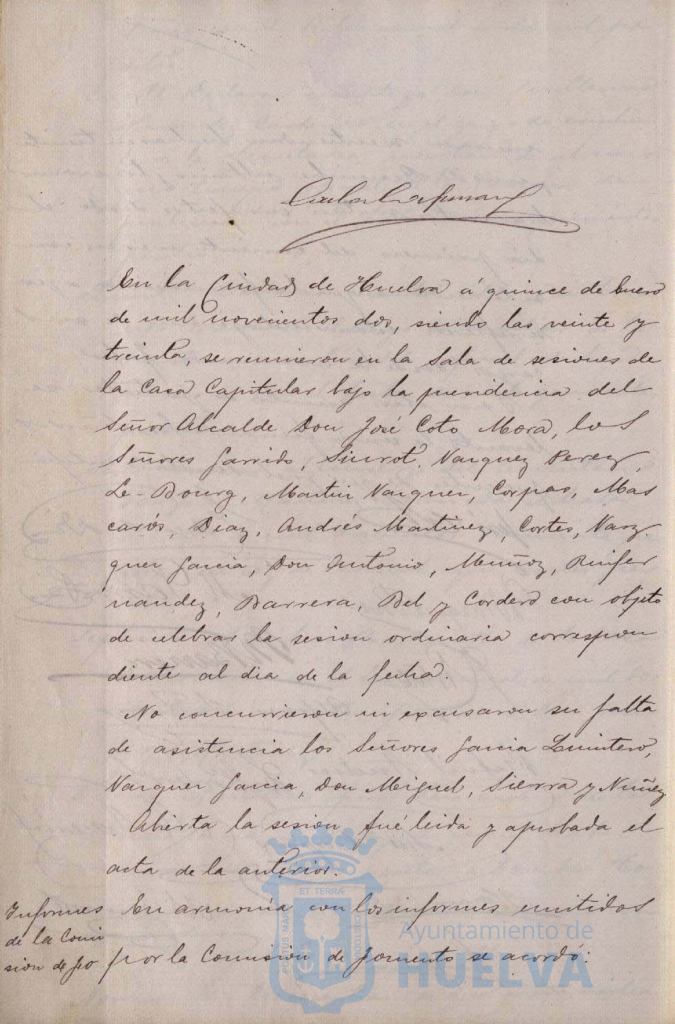 En la Ciudad de Huelva á quince de Enero
de mil novecientos dos, siendo las veinte y
treinta, se reunieron en la Sala de sesiones de
la Casa Capitular bajo la presidencia del
Señor Alcalde Don José Coto Mora, los
Señores Garrido, Siurot, Vazquez Perez,
Le-Bourg, Martin Vazquez, Corpas, Mas
carós, Diaz, Andrés Martinez, Cortes, Vaz-
quez Garcia, Don Antonio, Muñoz, Ruifer
nandez, Barrera, Bel y Cordero con objeto
de celebrar la sesion ordinaria correspon
diente al dia de la fecha.
No concurrieron ni excusaron su falta
de asistencia los Señores Garcia Quintero,
Vazquez Garcia, Don Miguel, Sierra y Nuñez
Abierta la sesion fué leida y aprobada el
acta de la anterior.
Informes
de la Comi
sion de fo
En armonía con los informes emitidos
por la Comision de fomento se acordó:
ET TERRÆ
Ayuntamiento de
HUELVA